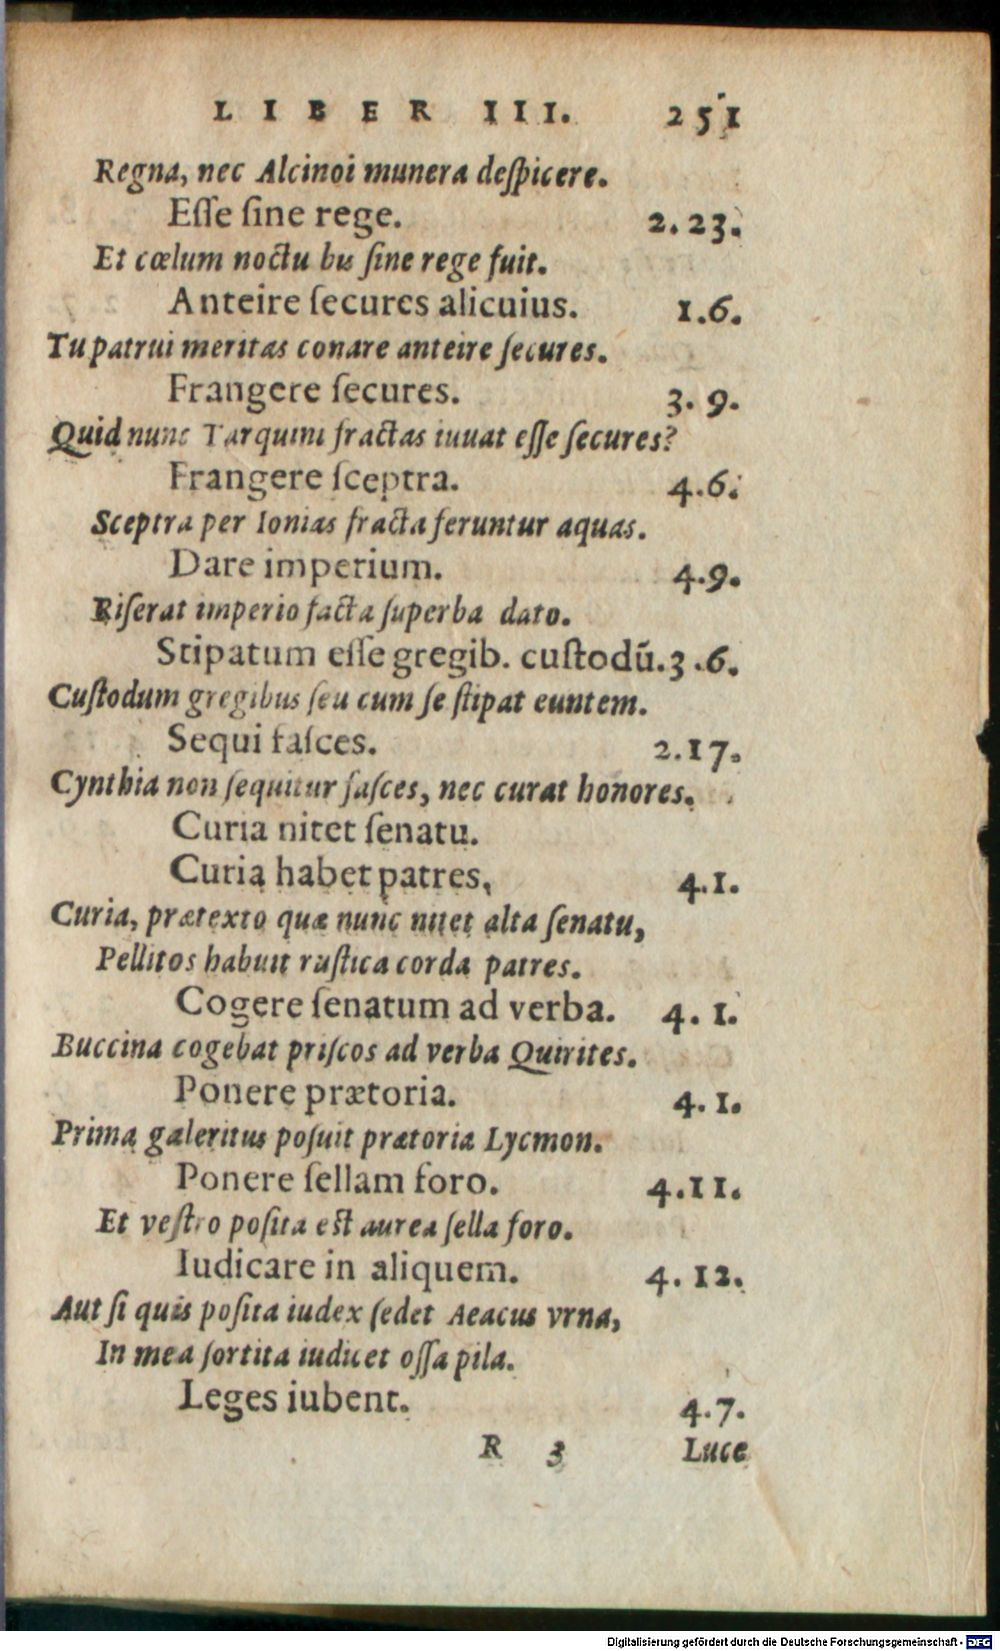 LIBER III. 251
Regna, nec Alcinoi munera deſpicere.
Eſſe ſine rege. 2. 23.
Et cœlum noctu bu ſine rege fuit.
Anteire ſecures alicuius. 1.6.
Tu patrui meritas conare anteire ſecures.
Frangere ſecures. 3. 9.
Quid nunc Tarquini fractas iuuat eſſe ſecures?
Frangere ſceptra. 4.6.
Sceptra per Ionias fracta feruntur aquas.
Dare imperium. 4.9.
Riſerat imperio facta ſuperba dato.
Stipatum eſſe gregib. cuſtodū. 3.6.
Cuſtodum gregibus ſeu cum ſe ſtipat euntem.
Sequi faſces. 2.17.
Cynthia non ſequitur faſces, nec curat honores.
Curia nitet ſenatu.
Curia habet patres, 4.1.
Curia, prætexto quæ nunc nitet alta ſenatu,
Pellitos habuit ruſtica corda patres.
Cogere ſenatum ad verba. 4. 1.
Buccina cogebat priſcos ad verba Quirites.
Ponere prætoria. 4. 1.
Prima galeritus poſuit prætoria Lycmon.
Ponere ſellam foro. 4.11.
Et veſtro poſita eſt aurea ſella foro.
Iudicare in aliquem. 4. 12.
Aut ſi quis poſita iudex ſedet Aeacus vrna,
In mea ſortita iudicet oſſa pila.
Leges iubent. 4.7.
R 3 Luce
Digitalisierung gefördert durch die Deutsche Forschungsgemeinschaft - DFG